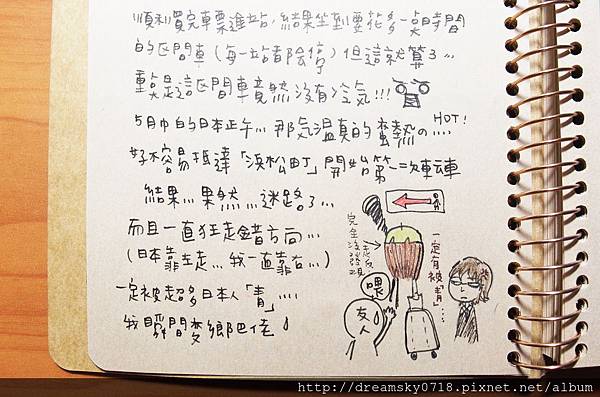 順利買完車票進站,結果坐到要花多一點時間
的區間車(每一站皆會停)但這就算了...
重點是這區間車竟然沒有冷氣!!!
5月中的日本正午...那気温真的蠻熱の.... HOT!
好不容易抵達「浜松町」開始第一次轉車
結果...果然...迷路了...
而且一直狂走錯方向...
(日本靠左走...我一直靠右...)
一定被超多日本人「青」....
我瞬間變鄉巴佬!
完全沒發現
走反
一定有被「青」...
喂
友人
http://dreamsky0718.pixnet.net/album